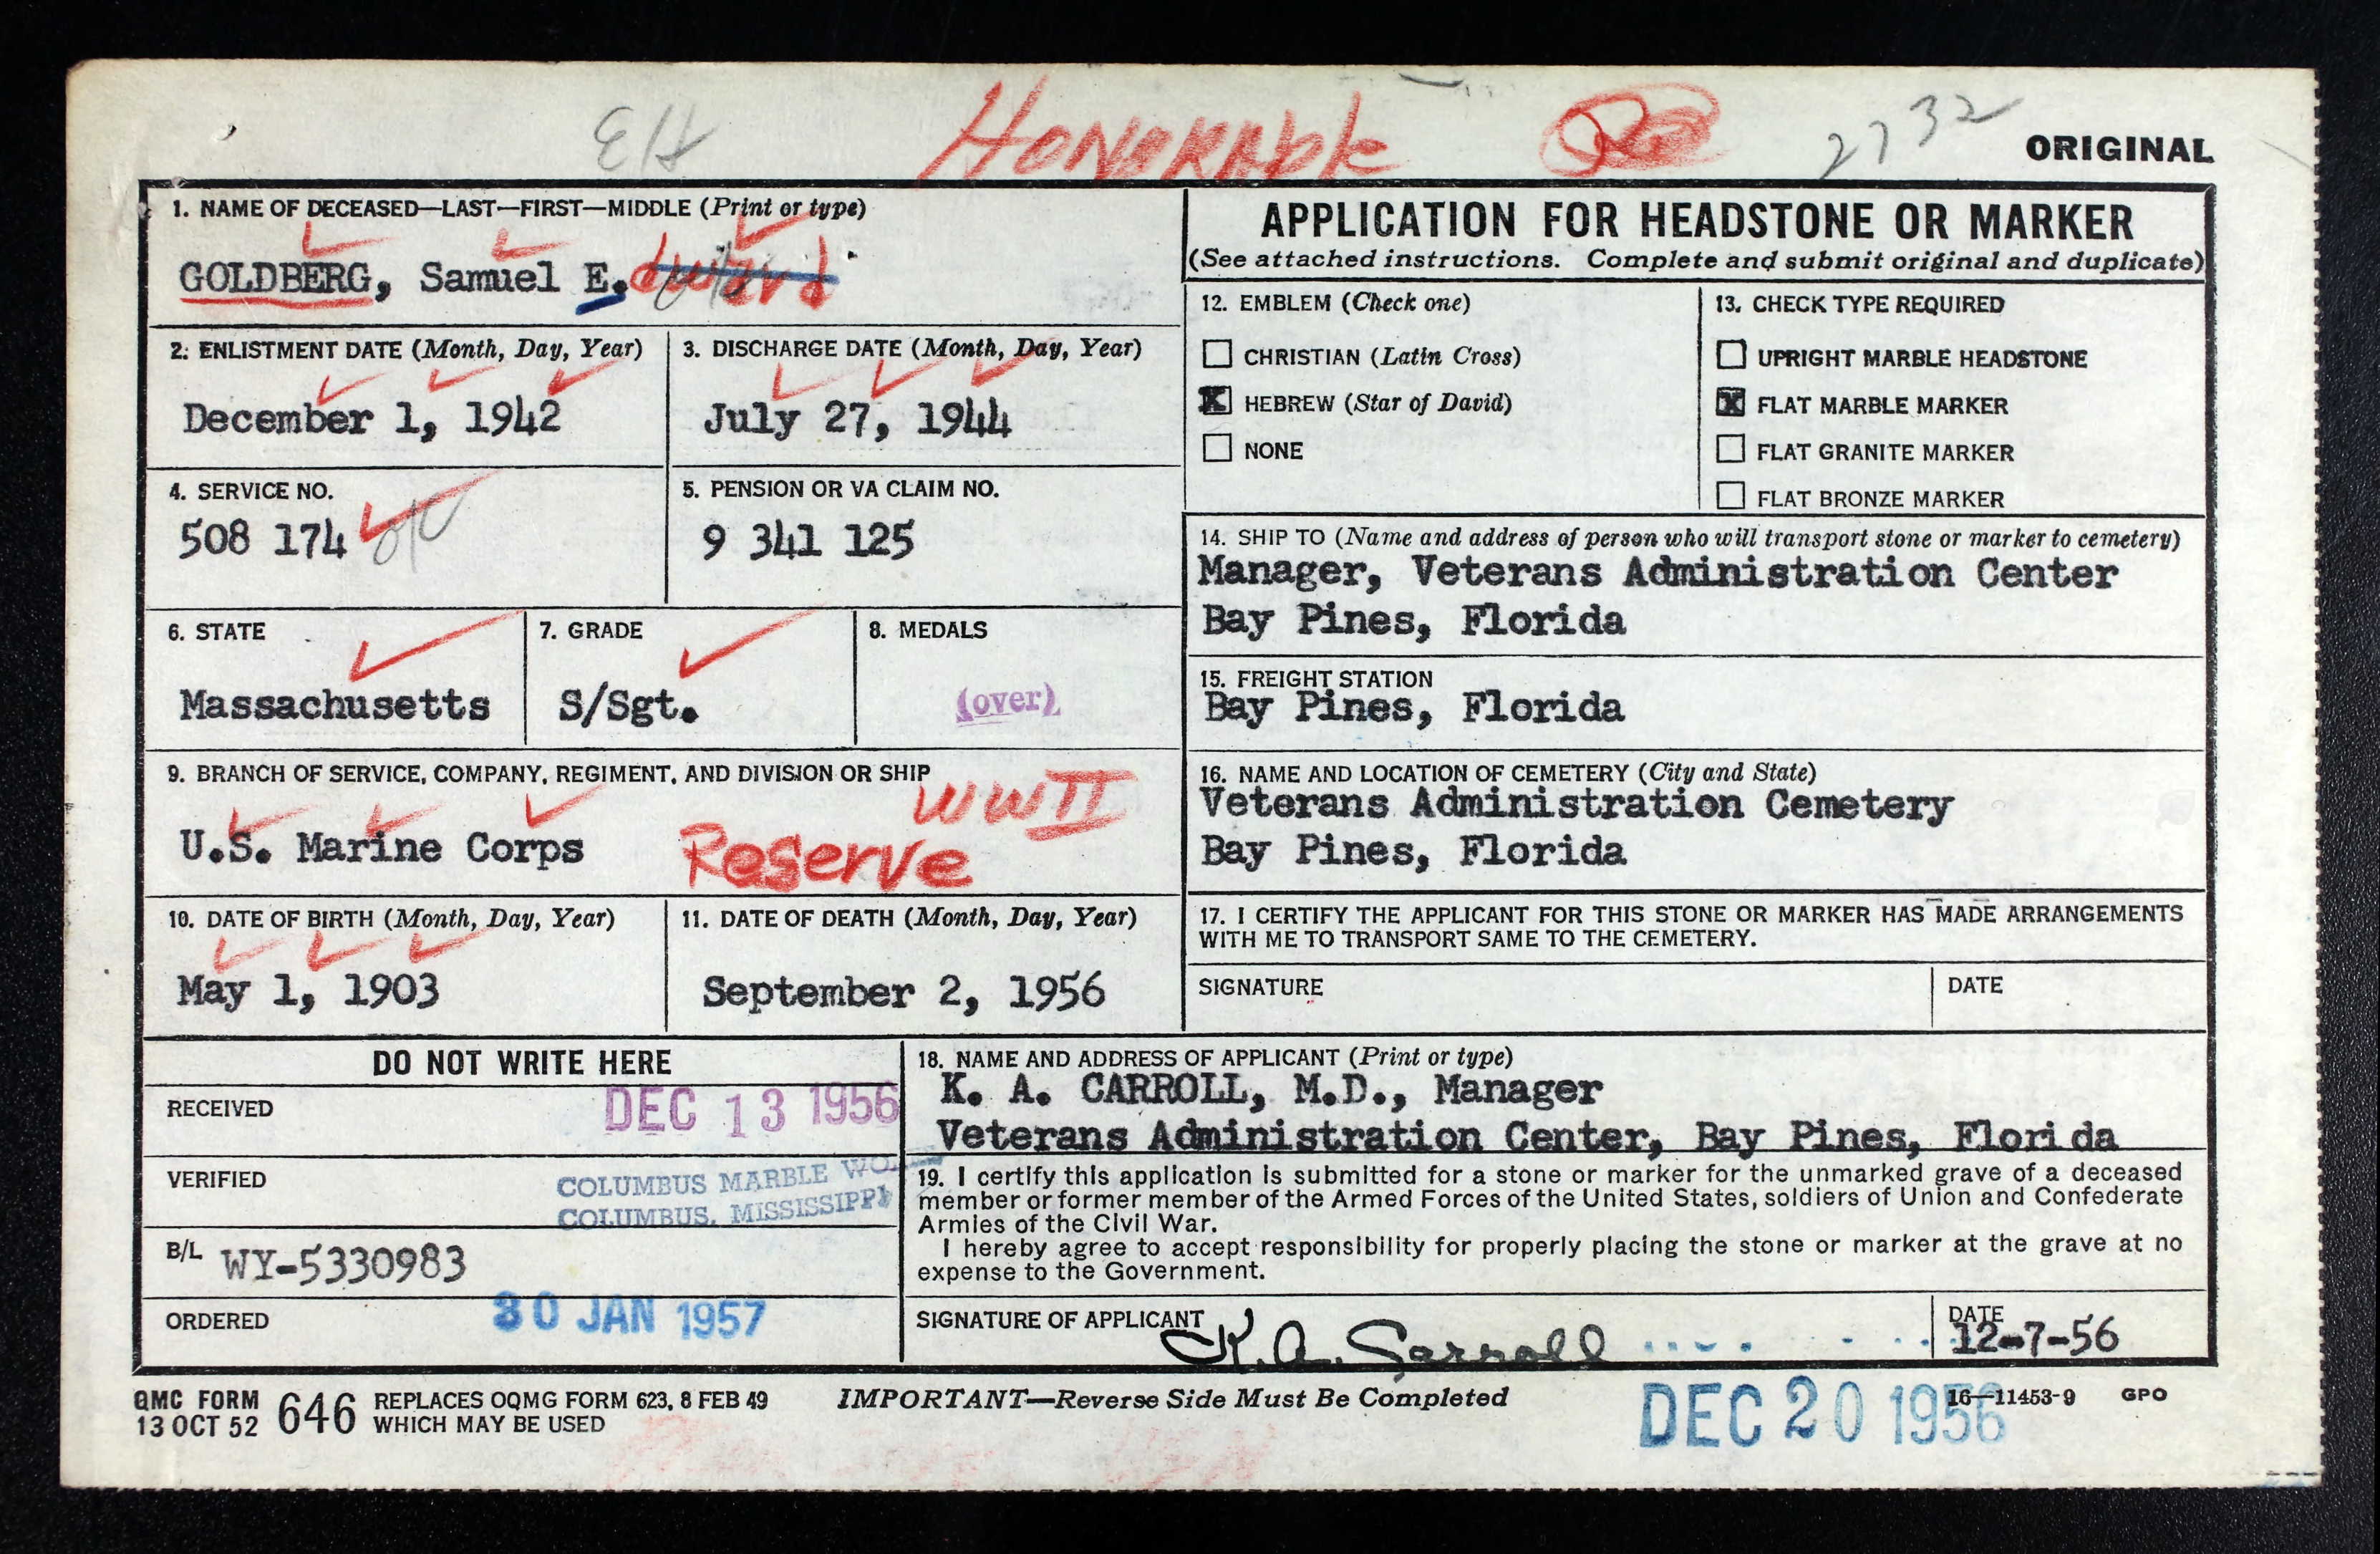 EH HONORABLE 2732 ORIGINAL
1. NAME OF DECEASED—LAST—FIRST—MIDDLE (Print or type)
GOLDBERG, Samuel E. dward
2. ENLISTMENT DATE (Month, Day, Year)
December 1, 1942
3. DISCHARGE DATE (Month, Day, Year)
July 27, 1944
4. SERVICE NO.
508 174
5. PENSION OR VA CLAIM NO.
9 341 125
6. STATE
Massachusetts
7. GRADE
S/Sgt.
8. MEDALS
(over)
9. BRANCH OF SERVICE, COMPANY, REGIMENT, AND DIVISION OR SHIP
WWII
U.S. Marine Corps Reserve
10. DATE OF BIRTH (Month, Day, Year)
May 1, 1903
11. DATE OF DEATH (Month, Day, Year)
September 2, 1956
APPLICATION FOR HEADSTONE OR MARKER
(See attached instructions. Complete and submit original and duplicate)
12. EMBLEM (Check one)
CHRISTIAN (Latin Cross)
X HEBREW (Star of David)
NONE
13. CHECK TYPE REQUIRED
UPRIGHT MARBLE HEADSTONE
X FLAT MARBLE MARKER
FLAT GRANITE MARKER
FLAT BRONZE MARKER
14. SHIP TO (Name and address of person who will transport stone or marker to cemetery)
Manager, Veterans Administration Center
Bay Pines, Florida
15. FREIGHT STATION
Bay Pines, Florida
16. NAME AND LOCATION OF CEMETERY (City and State)
Veterans Administration Cemetery
Bay Pines, Florida
17. I CERTIFY THE APPLICANT FOR THIS STONE OR MARKER HAS MADE ARRANGEMENTS
WITH ME TO TRANSPORT SAME TO THE CEMETERY.
SIGNATURE
DATE
DO NOT WRITE HERE
RECEIVED DEC 13 1956
VERIFIED
COLUMBUS MARBLE WO
COLUMBUS, MISSISSIPPI
B/L WY-5330983
ORDERED 30 JAN 1957
18. NAME AND ADDRESS OF APPLICANT (Print or type)
K. A. CARROLL, M.D., Manager
Veterans Administration Center, Bay Pines, Florida
19. I certify this application is submitted for a stone or marker for the unmarked grave of a deceased
member or former member of the Armed Forces of the United States, soldiers of Union and Confederate
Armies of the Civil War.
I hereby agree to accept responsibility for properly placing the stone or marker at the grave at no
expense to the Government.
SIGNATURE OF APPLICANT
K. A. Carroll
DATE
12-7-56
QMC FORM
13 OCT 52 646
REPLACES OQMG FORM 623, 8 FEB 49
WHICH MAY BE USED
IMPORTANT—Reverse Side Must Be Completed
DEC 20 1956
16—11453-9 GPO